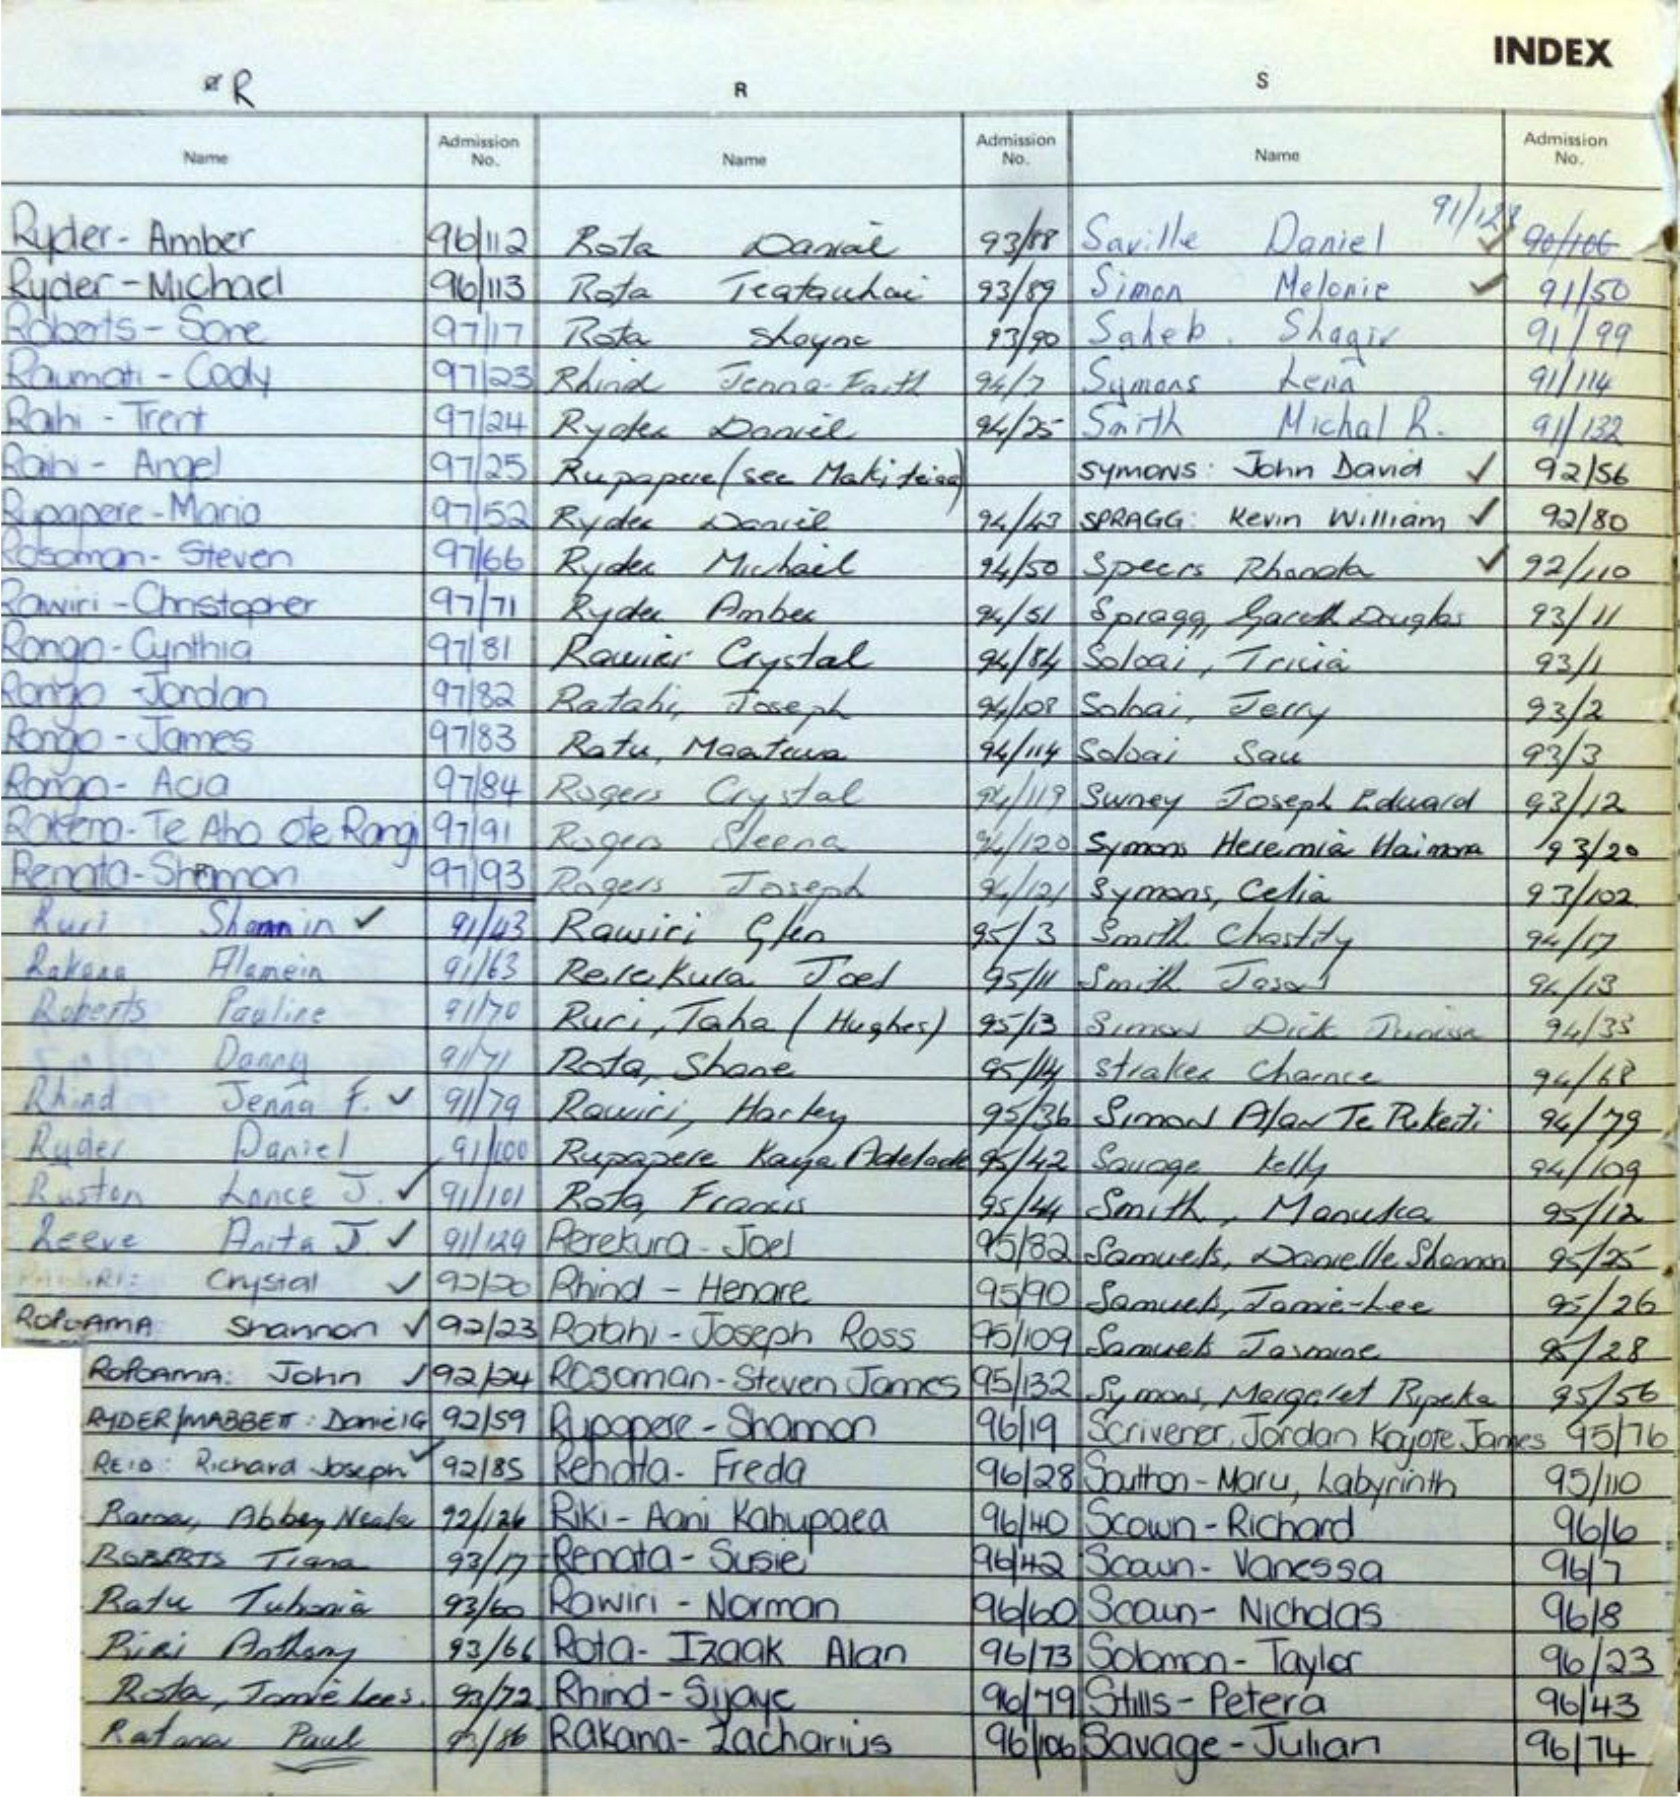 INDEX
R
R
S
Name
Admission
No.
Name
Admission
No.
Name
Admission
No.
Ryder - Amber 96/112
Ryder - Michael 96/113
Roberts - Sone 97/17
Raumati - Cody 97/23
Raihi - Trent 97/24
Raihi - Angel 97/25
Rupapere - Maria 97/52
Rosoman - Steven 97/66
Rawiri - Christopher 97/71
Rongo - Cynthia 97/81
Rongo - Jordan 97/82
Rongo - James 97/83
Rongo - Acia 97/84
Te Aho ote Rangi 97/91
Renata - Shannon 97/93
Ruri Shannin ✓ 91/43
Rakana Alamein 91/63
Roberts Pauline 91/70
Danny 91/71
Rhind Jenna F. ✓ 91/79
Ryder Daniel 91/100
Ruston Lance J. ✓ 91/101
Reeve Anita J. ✓ 91/129
Crystal ✓ 92/20
ROPOAMA Shannon ✓ 92/23
ROPOAMA: John ✓ 92/24
RYDER/MABBETT: Daniel G 92/59
REID: Richard Joseph ✓ 92/85
Abbey Neale 92/126
ROBERTS Tiana 93/17
Ratu Tuhonia 93/60
Riri Anthony 93/66
Rota, Jamie Lees. 93/72
Ratana Paul /86
Rota Daniel 93/88
Rota Teatauhai 93/89
Rota Shayne 93/90
Rhind Jenna-Faith 94/7
Ryder Daniel 94/25
Rupapere (see Makiteiaa)
Ryder Daniel 94/43
Ryder Michael 94/50
Ryder Amber 94/51
Rawier Crystal 94/84
Ratahi, Joseph 94/08
Ratu, Maatewa 94/114
Rogers Crystal 94/119
Rogers Sleena 94/120
Rogers Joseph 94/121
Rawiri Glen 95/3
Rerekura Joel 95/11
Ruri, Taha (Hughes) 95/13
Rota, Shane 95/14
Rawiri, Harley 95/36
Rupapere Kaya Adelade 95/42
Rota, Francis 95/44
Rerekura - Joel 95/82
Rhind - Henare 95/90
Ratahi - Joseph Ross 95/109
Rosoman - Steven James 95/132
Rupapere - Shannon 96/19
Renata - Freda 96/28
Riki - Aani Kahupaea 96/40
Renata - Susie 96/42
Rawiri - Norman 96/60
Rota - Izaak Alan 96/73
Rhind - Sijaye 96/79
Rakana - Zacharius 96/106
91/128
Saville Daniel ✓ 90/106
Simon Melonie ✓ 91/50
Saheb. Shagir 91/99
Symons Lena 91/114
Smith Michal R. 91/132
SYMONS: John David ✓ 92/56
SPRAGG: Kevin William ✓ 92/80
Speers Rhonda ✓ 92/110
Spragg, Gareth Douglas 93/11
Soloai, Tricia 93/1
Soloai, Jerry 93/2
Soloai Sau 93/3
Swney Joseph Edward 93/12
Symons Heremia Haimona 93/20
Symons, Celia 93/102
Smith Chastity 94/17
Smith Jason 94/13
Simon Dick 94/35
Straker Charnce 94/68
Simon Alan Te Pukeiti 94/79
Savage Kelly 94/109
Smith, Manuka 95/12
Samuels, Danielle Shannon 95/25
Samuels, Jamie-Lee 95/26
Samuels Jasmine 95/28
Symons, Margaret Ripeka 95/56
Scrivener, Jordan Kajote James 95/76
Soutton - Maru, Labyrinth 95/110
Scown - Richard 96/6
Scown - Vanessa 96/7
Scown - Nicholas 96/8
Solomon - Taylor 96/23
Stills - Petera 96/43
Savage - Julian 96/74